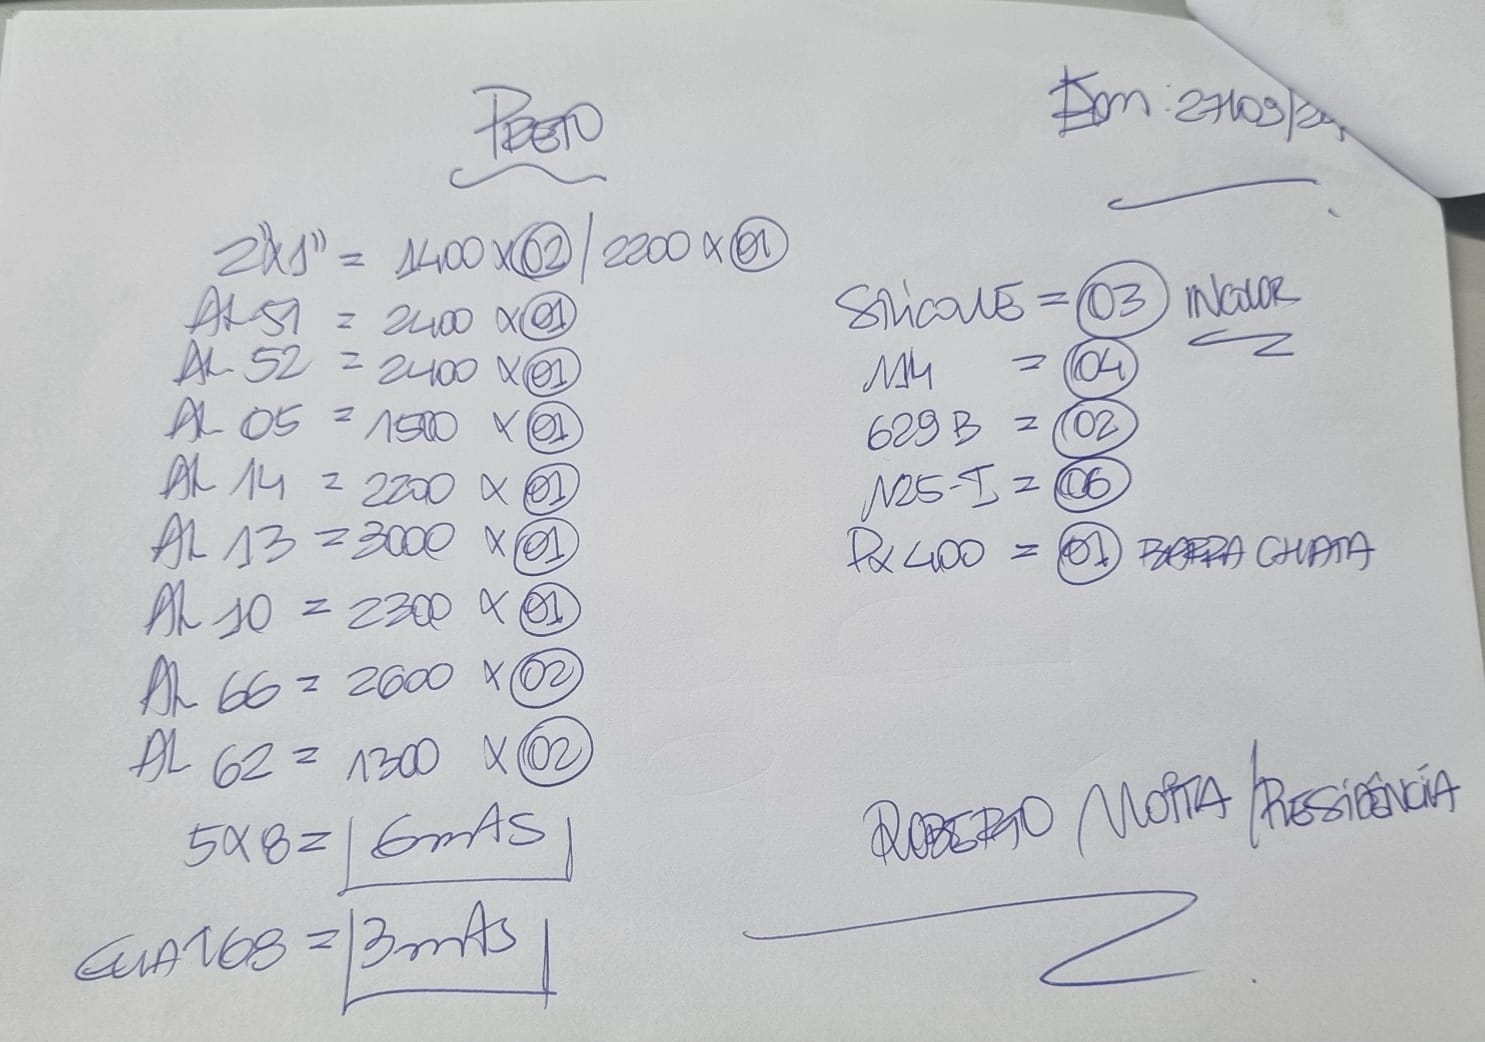 PRETO
Em: 27/09/24
2"x1" = 1400 x 02 / 2200 x 01
AL 51 = 2400 x 01
AL 52 = 2400 x 01
AL 05 = 1500 x 01
AL 14 = 2200 x 01
AL 13 = 3000 x 01
AL 10 = 2300 x 01
AL 66 = 2600 x 02
AL 62 = 1300 x 02
5x8 = 6mAS
GUA 168 = 3mAS
SILICONE = 03 INCOLOR
114 = 04
629 B = 02
N25-I = 06
Px 400 = 01 BARRA CHATA
ROBERTO MOTTA / RESIDÊNCIA